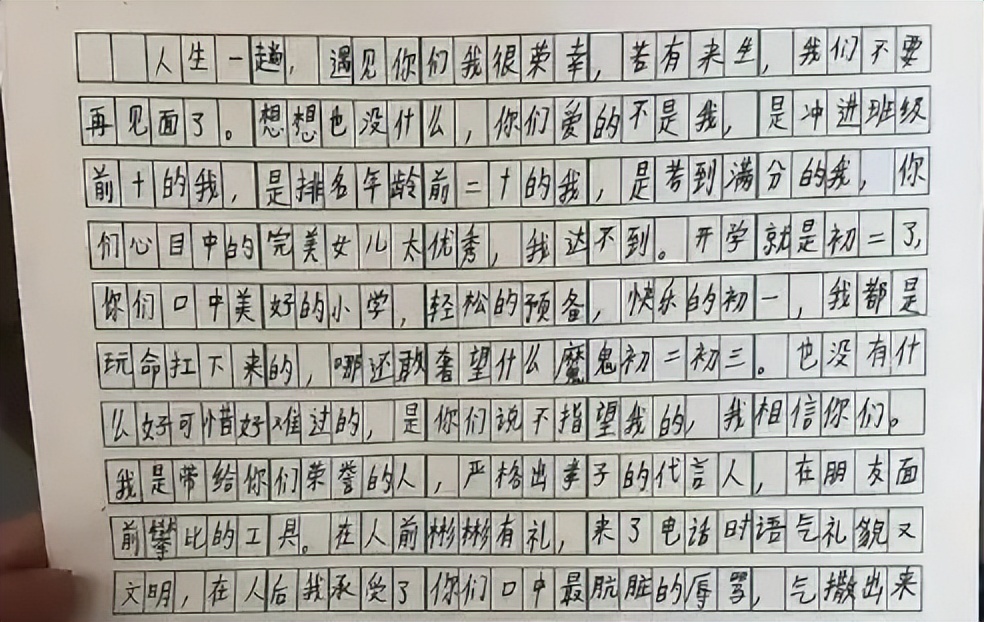 人生一趟，遇见你们我很荣幸，若有来生，我们不要
再见面了。想想也没什么，你们爱的不是我，是冲进班级
前十的我，是排名年龄前二十的我，是考到满分的我，你
们心目中的完美女儿太优秀，我达不到。开学就是初二了，
你们口中美好的小学，轻松的预备，快乐的初一，我都是
玩命扛下来的，哪还敢奢望什么魔鬼初二初三。也没有什
么好可惜好难过的，是你们说不指望我的，我相信你们。
我是带给你们荣誉的人，严格出孝子的代言人，在朋友面
前攀比的工具。在人前彬彬有礼，来了电话时语气礼貌又
文明，在人后我承受了你们口中最肮脏的辱骂，气撒出来